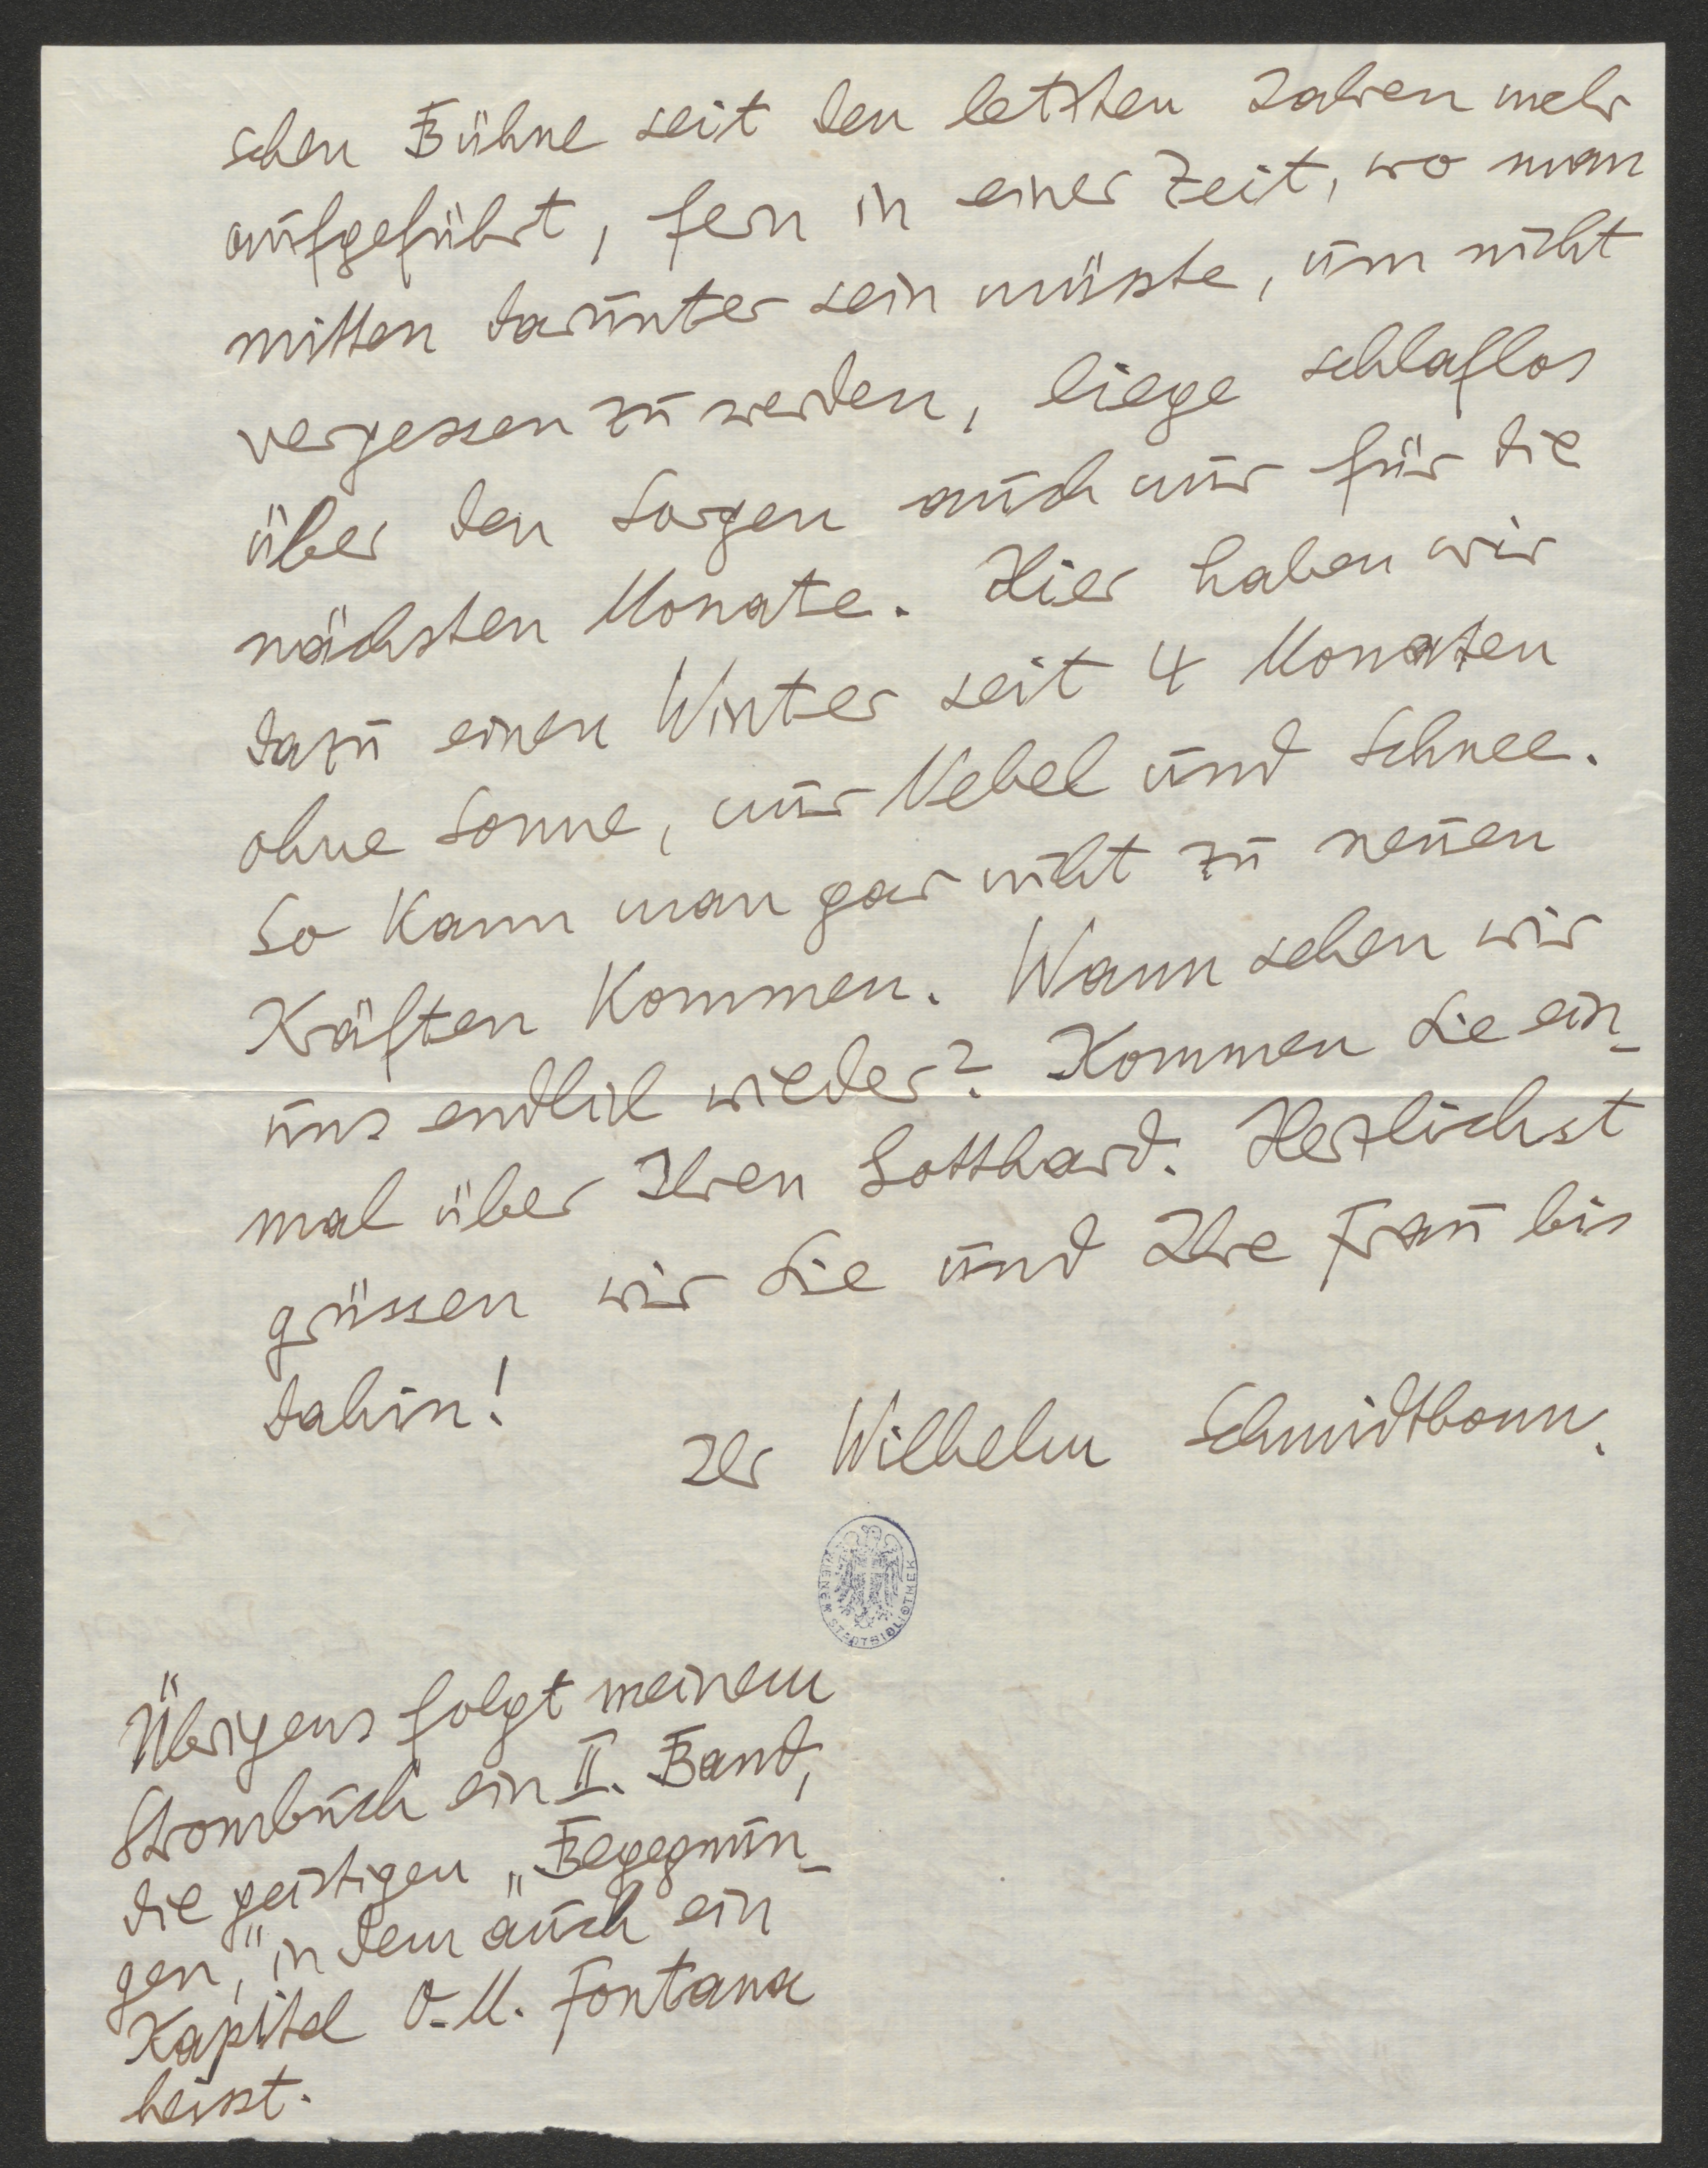 schen Bühne seit den letzten Jahren mehr
aufgeführt, fern in einer Zeit, wo man
mitten darunter sein müsste, um nicht
vergessen zu werden, liege schlaflos
über den Sorgen auch nur für die
nächsten Monate. Hier haben wir
dazu einen Winter seit 4 Monaten
ohne Sonne, nur Nebel und Schnee.
So kann man gar nicht zu neuen
Kräften kommen. Wann sehen wir
uns endlich wieder? Kommen Sie ein-
mal über Ihren Gotthard. Herzlichst
grüssen wir Sie und Ihre Frau bis
dahin!
Ihr Wilhelm Schmidtbonn.
WIENER STADTBIBLIOTHEK
Übrigens folgt meinem
Strombuch ein II. Band,
die geistigen „Begegnun-
gen," in dem auch ein
Kapitel O. M. Fontana
heisst.